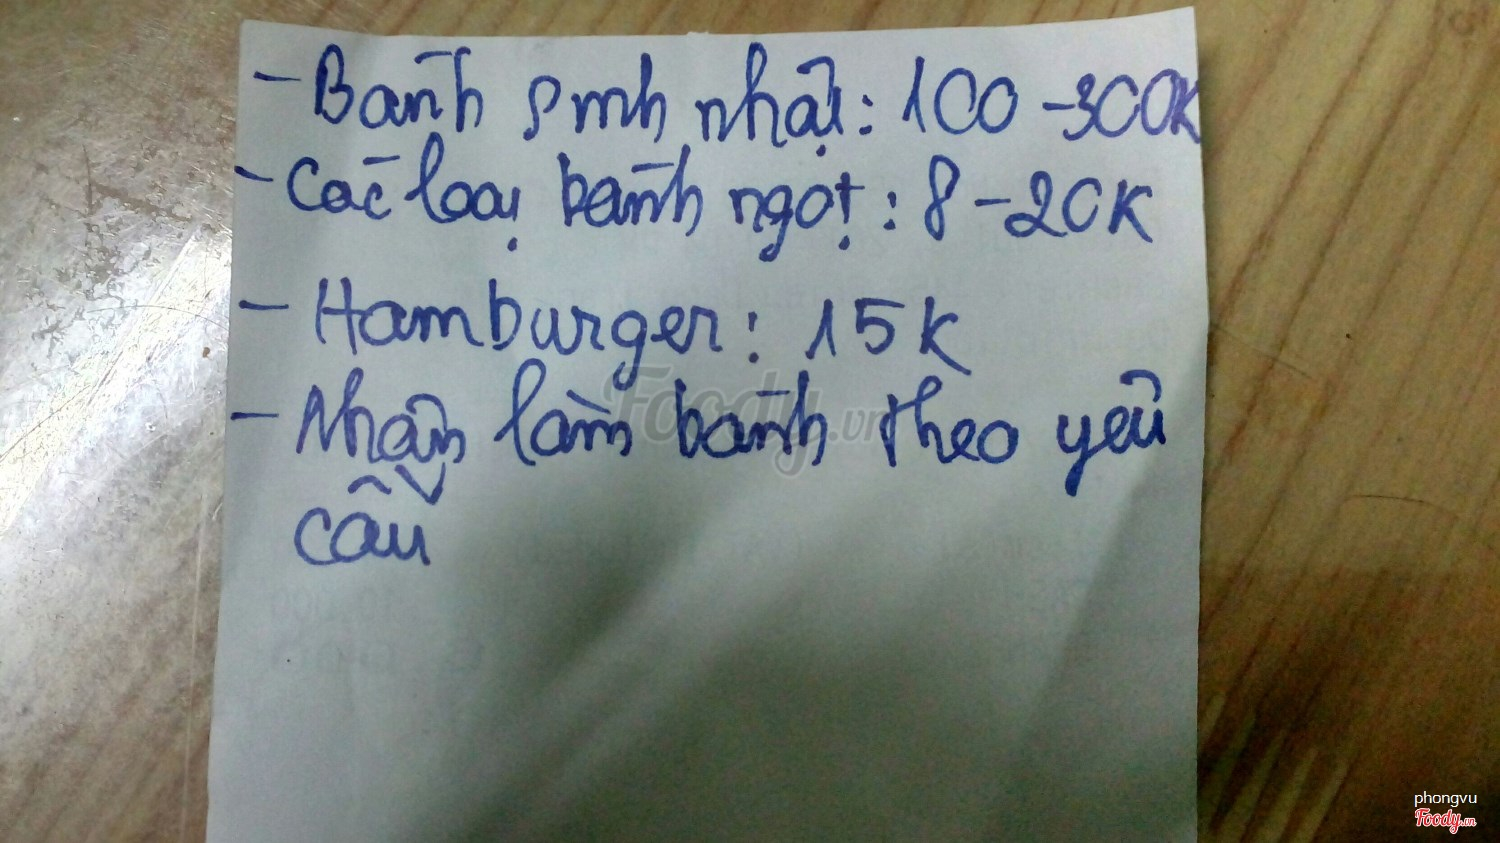 - Bánh sinh nhật: 100 - 300K
- Các loại bánh ngọt: 8 - 20K
- Hamburger: 15K
- Nhận làm bánh theo yêu
cầu
Foody.vn
phongvu
Foody.vn